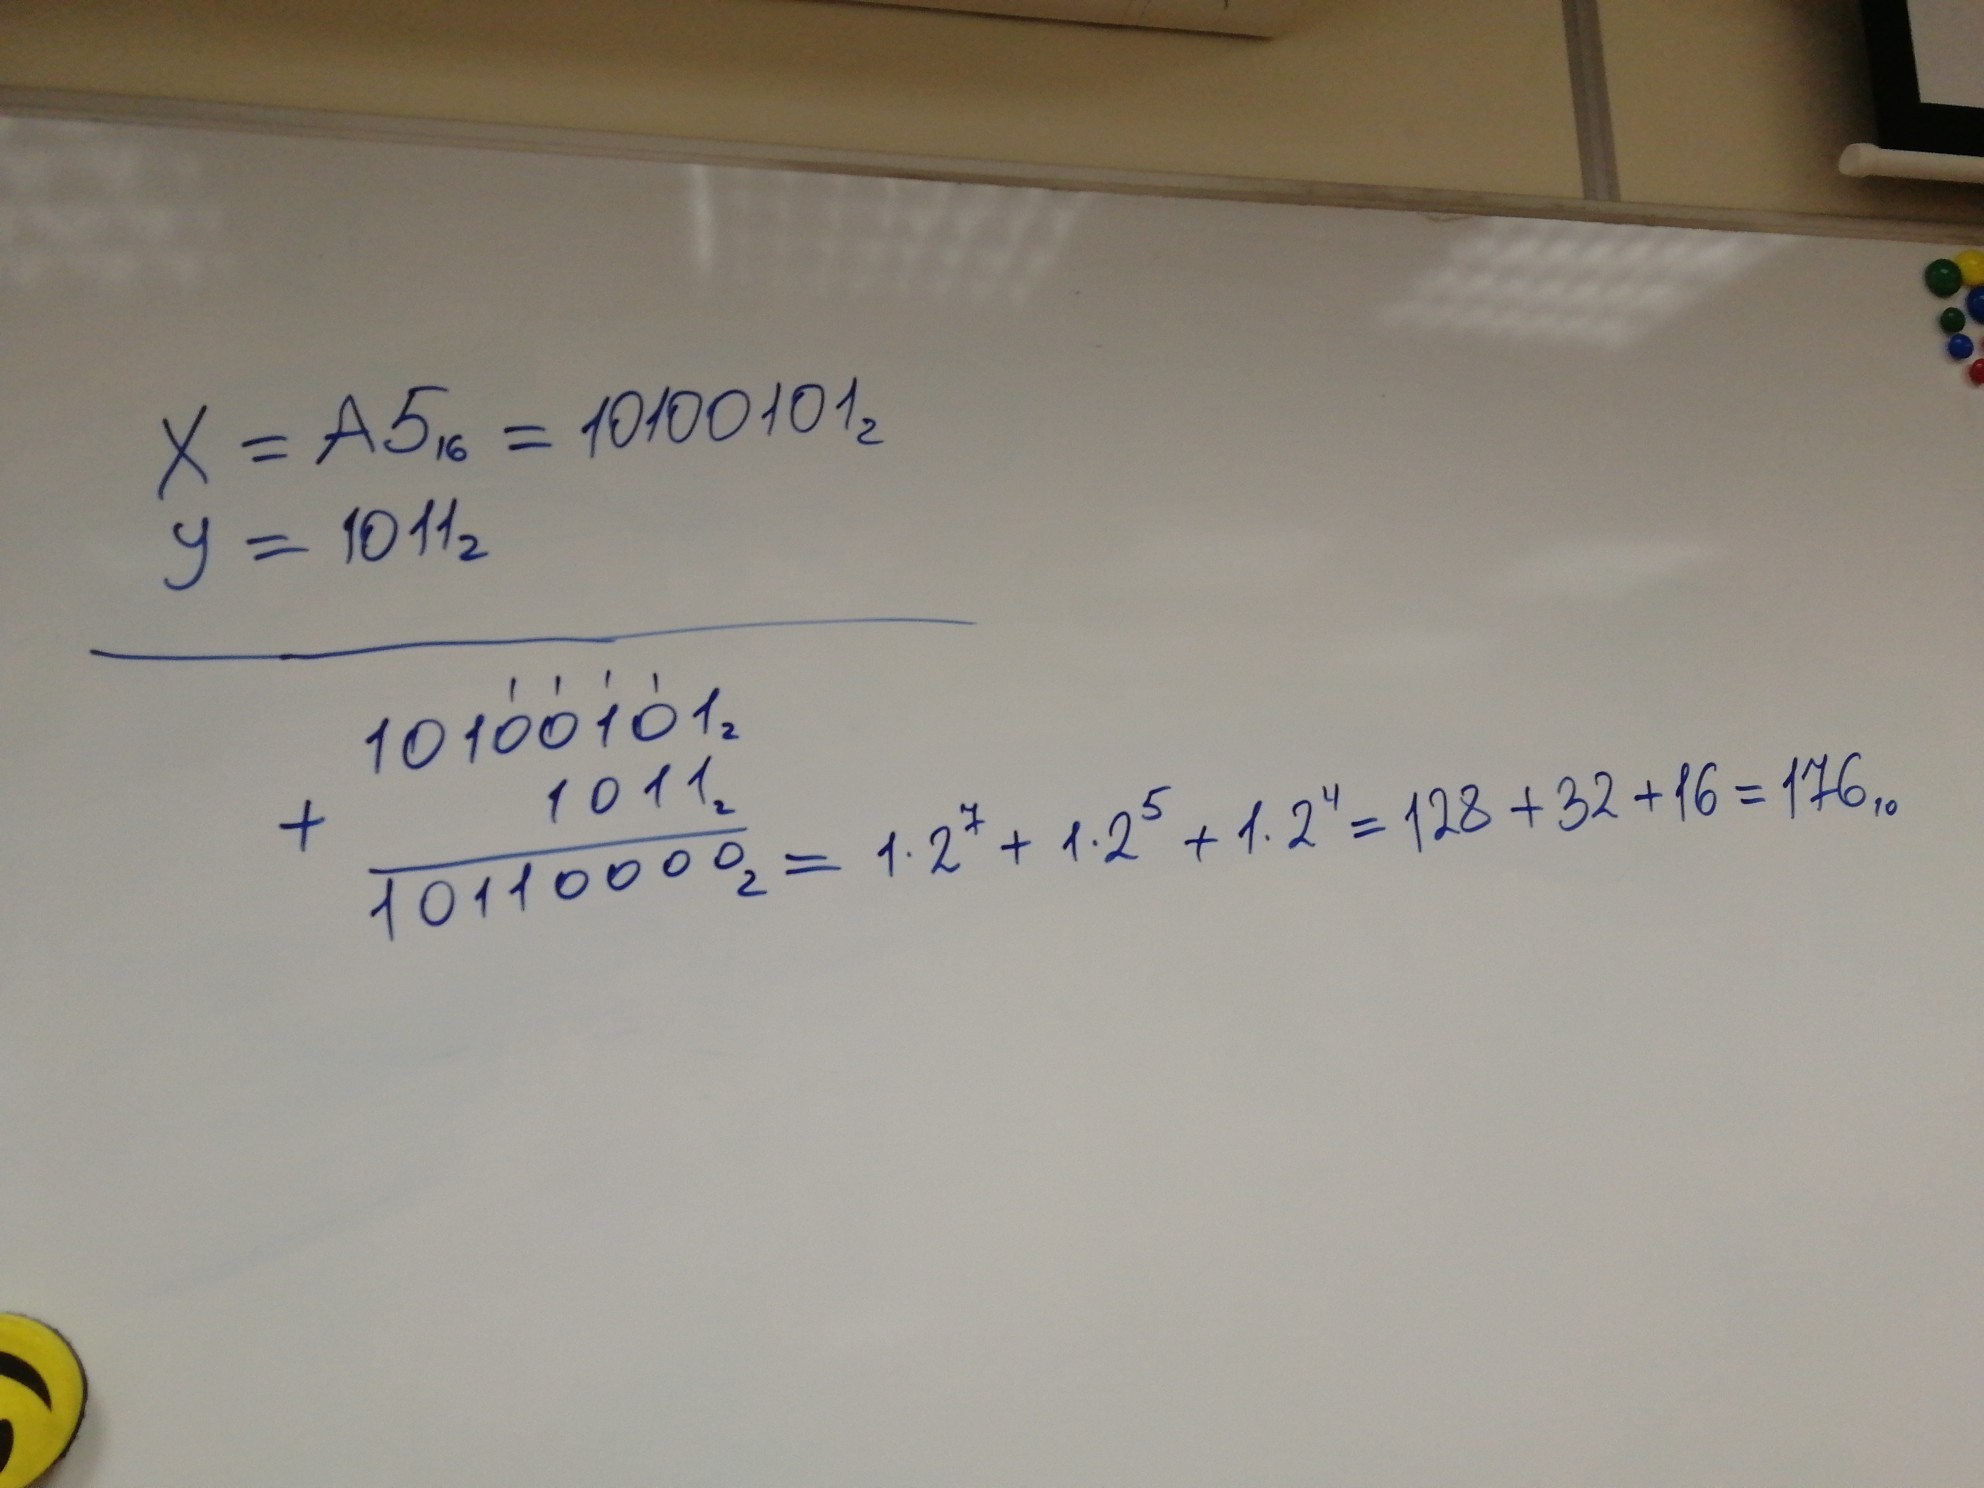 X = A5₁₆ = 10100101₂
y = 1011₂
1 1 1 1
10100101₂
+ 1011₂
10110000₂ = 1·2⁷ + 1·2⁵ + 1·2⁴ = 128 + 32 + 16 = 176₁₀